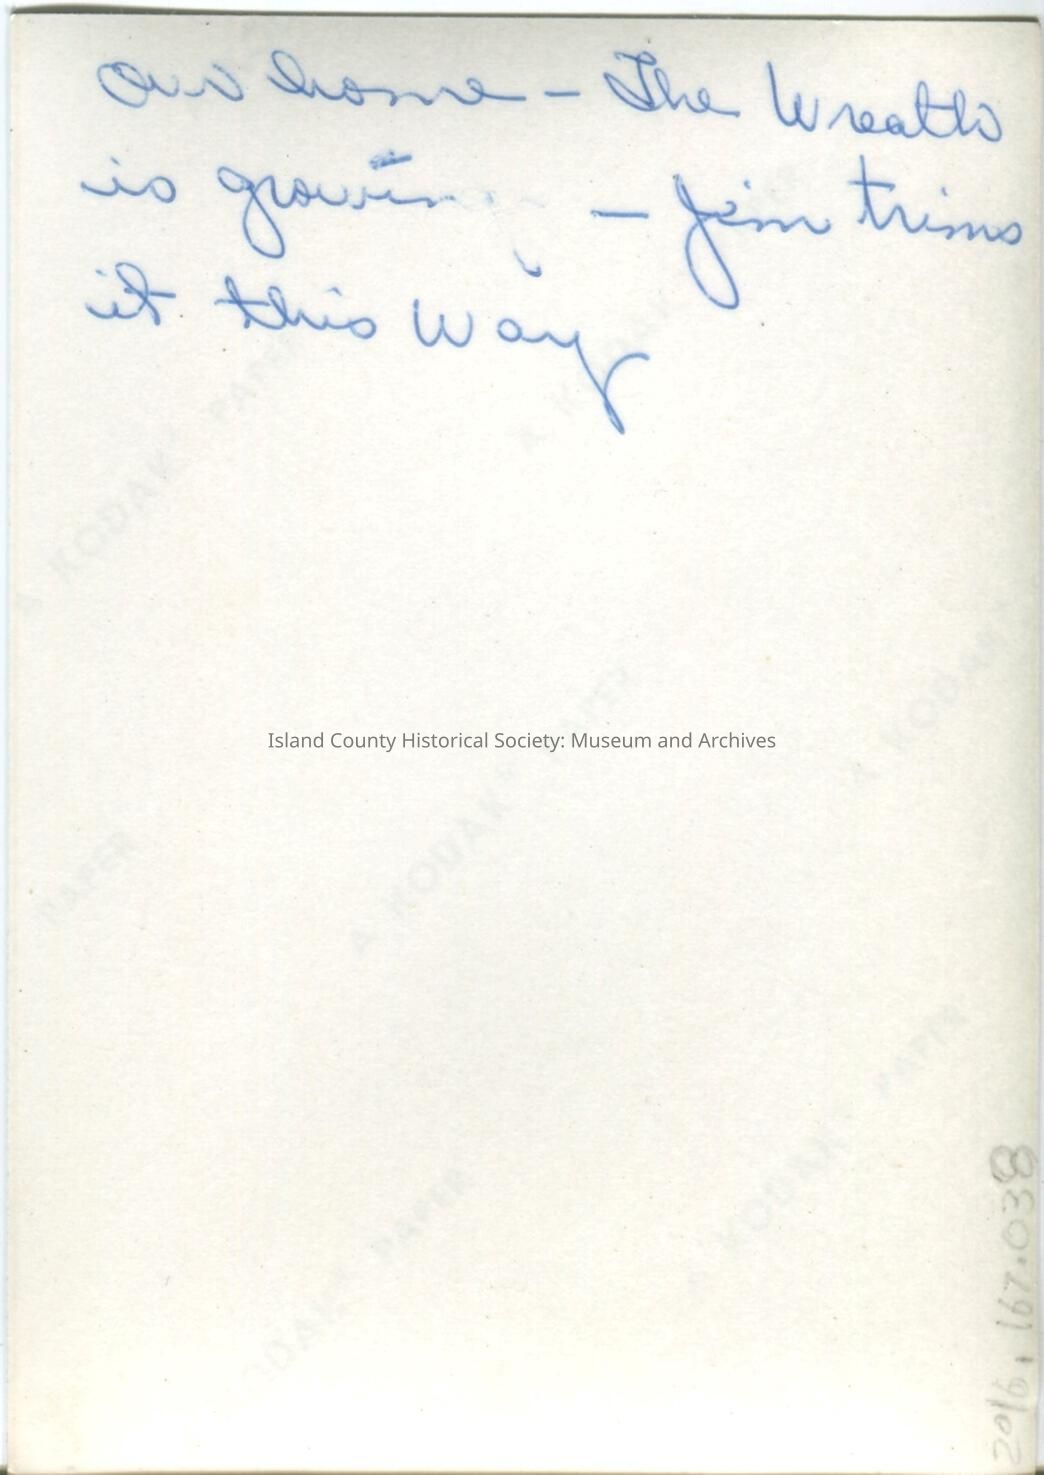 Our home - The Wreath
is growin - Jim trims
it this way
A KODAK PAPER
A KODAK PAPER
Island County Historical Society: Museum and Archives
A KODAK PAPER
A KODAK
PAPER
A KODAK PAPER
KODAK PAPER
2016.167.038